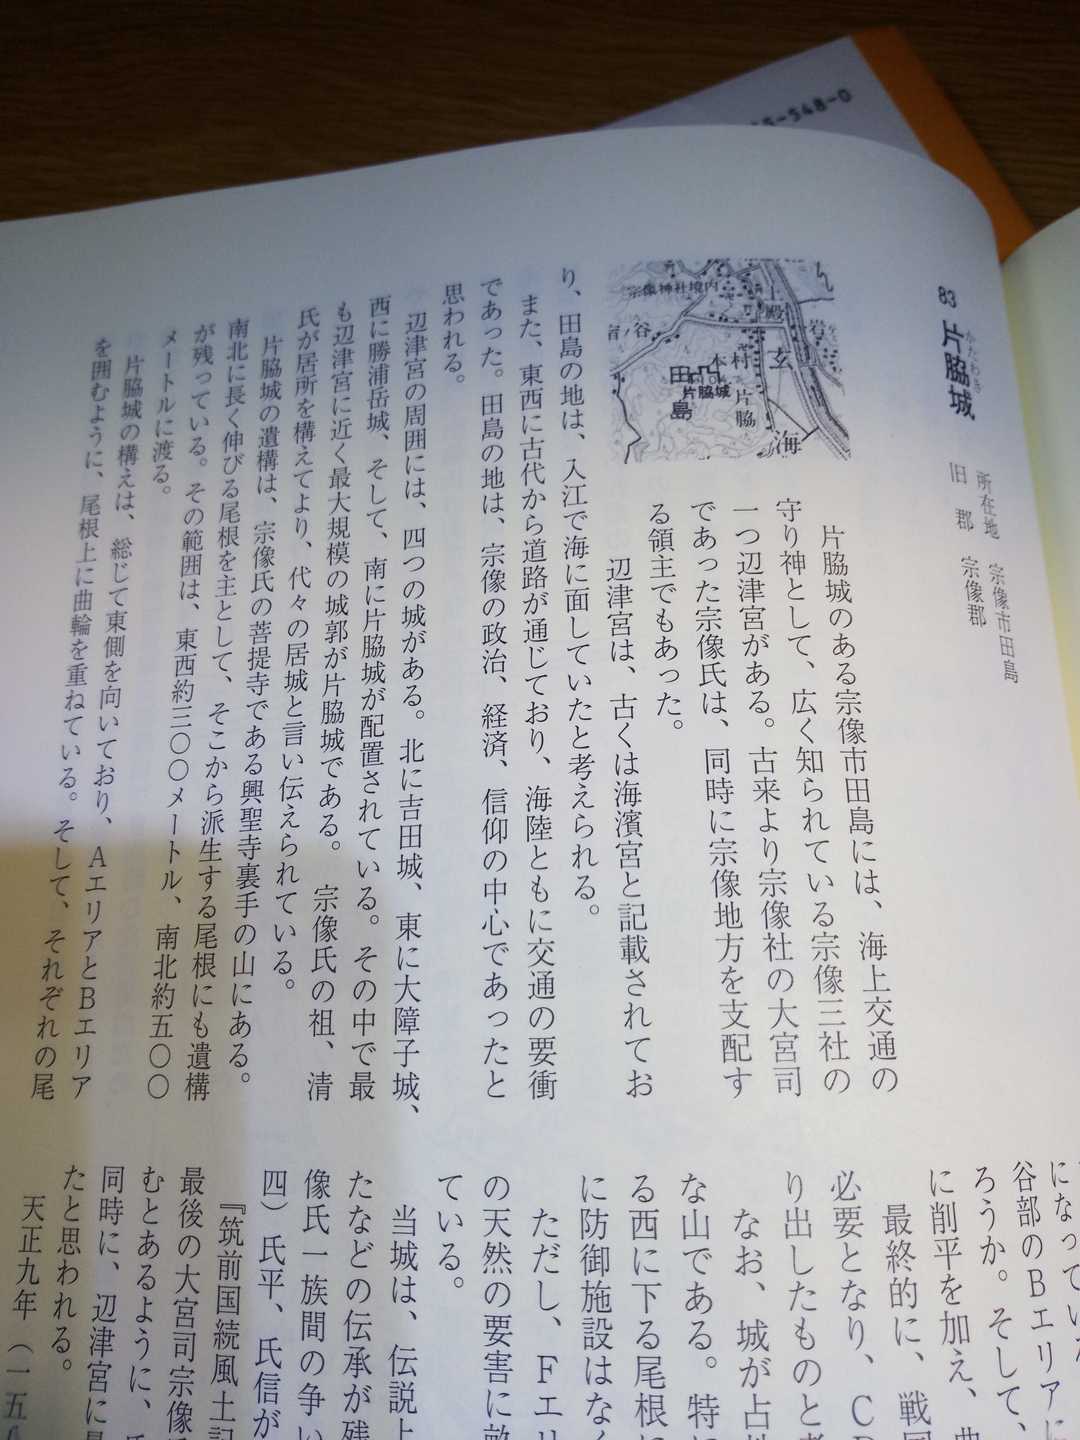 5-548-0
83
片脇城
かたわき
所在地 宗像市田島
旧 郡 宗像郡
宗像神社境内
上殿
岩
玄
海
宿ノ谷
本村
片脇
片脇城
田島
片脇城のある宗像市田島には、海上交通の
守り神として、広く知られている宗像三社の
一つ辺津宮がある。古来より宗像社の大宮司
であった宗像氏は、同時に宗像地方を支配す
る領主でもあった。
辺津宮は、古くは海濱宮と記載されてお
り、田島の地は、入江で海に面していたと考えられる。
また、東西に古代から道路が通じており、海陸ともに交通の要衝
であった。田島の地は、宗像の政治、経済、信仰の中心であったと
思われる。
辺津宮の周囲には、四つの城がある。北に吉田城、東に大障子城、
西に勝浦岳城、そして、南に片脇城が配置されている。その中で最
も辺津宮に近く最大規模の城郭が片脇城である。宗像氏の祖、清
氏が居所を構えてより、代々の居城と言い伝えられている。
片脇城の遺構は、宗像氏の菩提寺である興聖寺裏手の山にある。
南北に長く伸びる尾根を主として、そこから派生する尾根にも遺構
が残っている。その範囲は、東西約三〇〇メートル、南北約五〇〇
メートルに渡る。
片脇城の構えは、総じて東側を向いており、AエリアとBエリア
を囲むように、尾根上に曲輪を重ねている。そして、それぞれの尾
になってい
谷部のBエリアに
ろうか。そして、
に削平を加え、
最終的に、戦
必要となり、C
り出したものと
なお、城が占地
な山である。特に
る西に下る尾根に
に防御施設はなく
ただし、Fエリ
の天然の要害に
ている。
当城は、伝説上
たなどの伝承が残
像氏一族間の争い
四）氏平、氏信が
『筑前国続風土記
最後の大宮司宗像
むとあるように、
同時に、辺津宮に
たと思われる。
天正九年（一五八